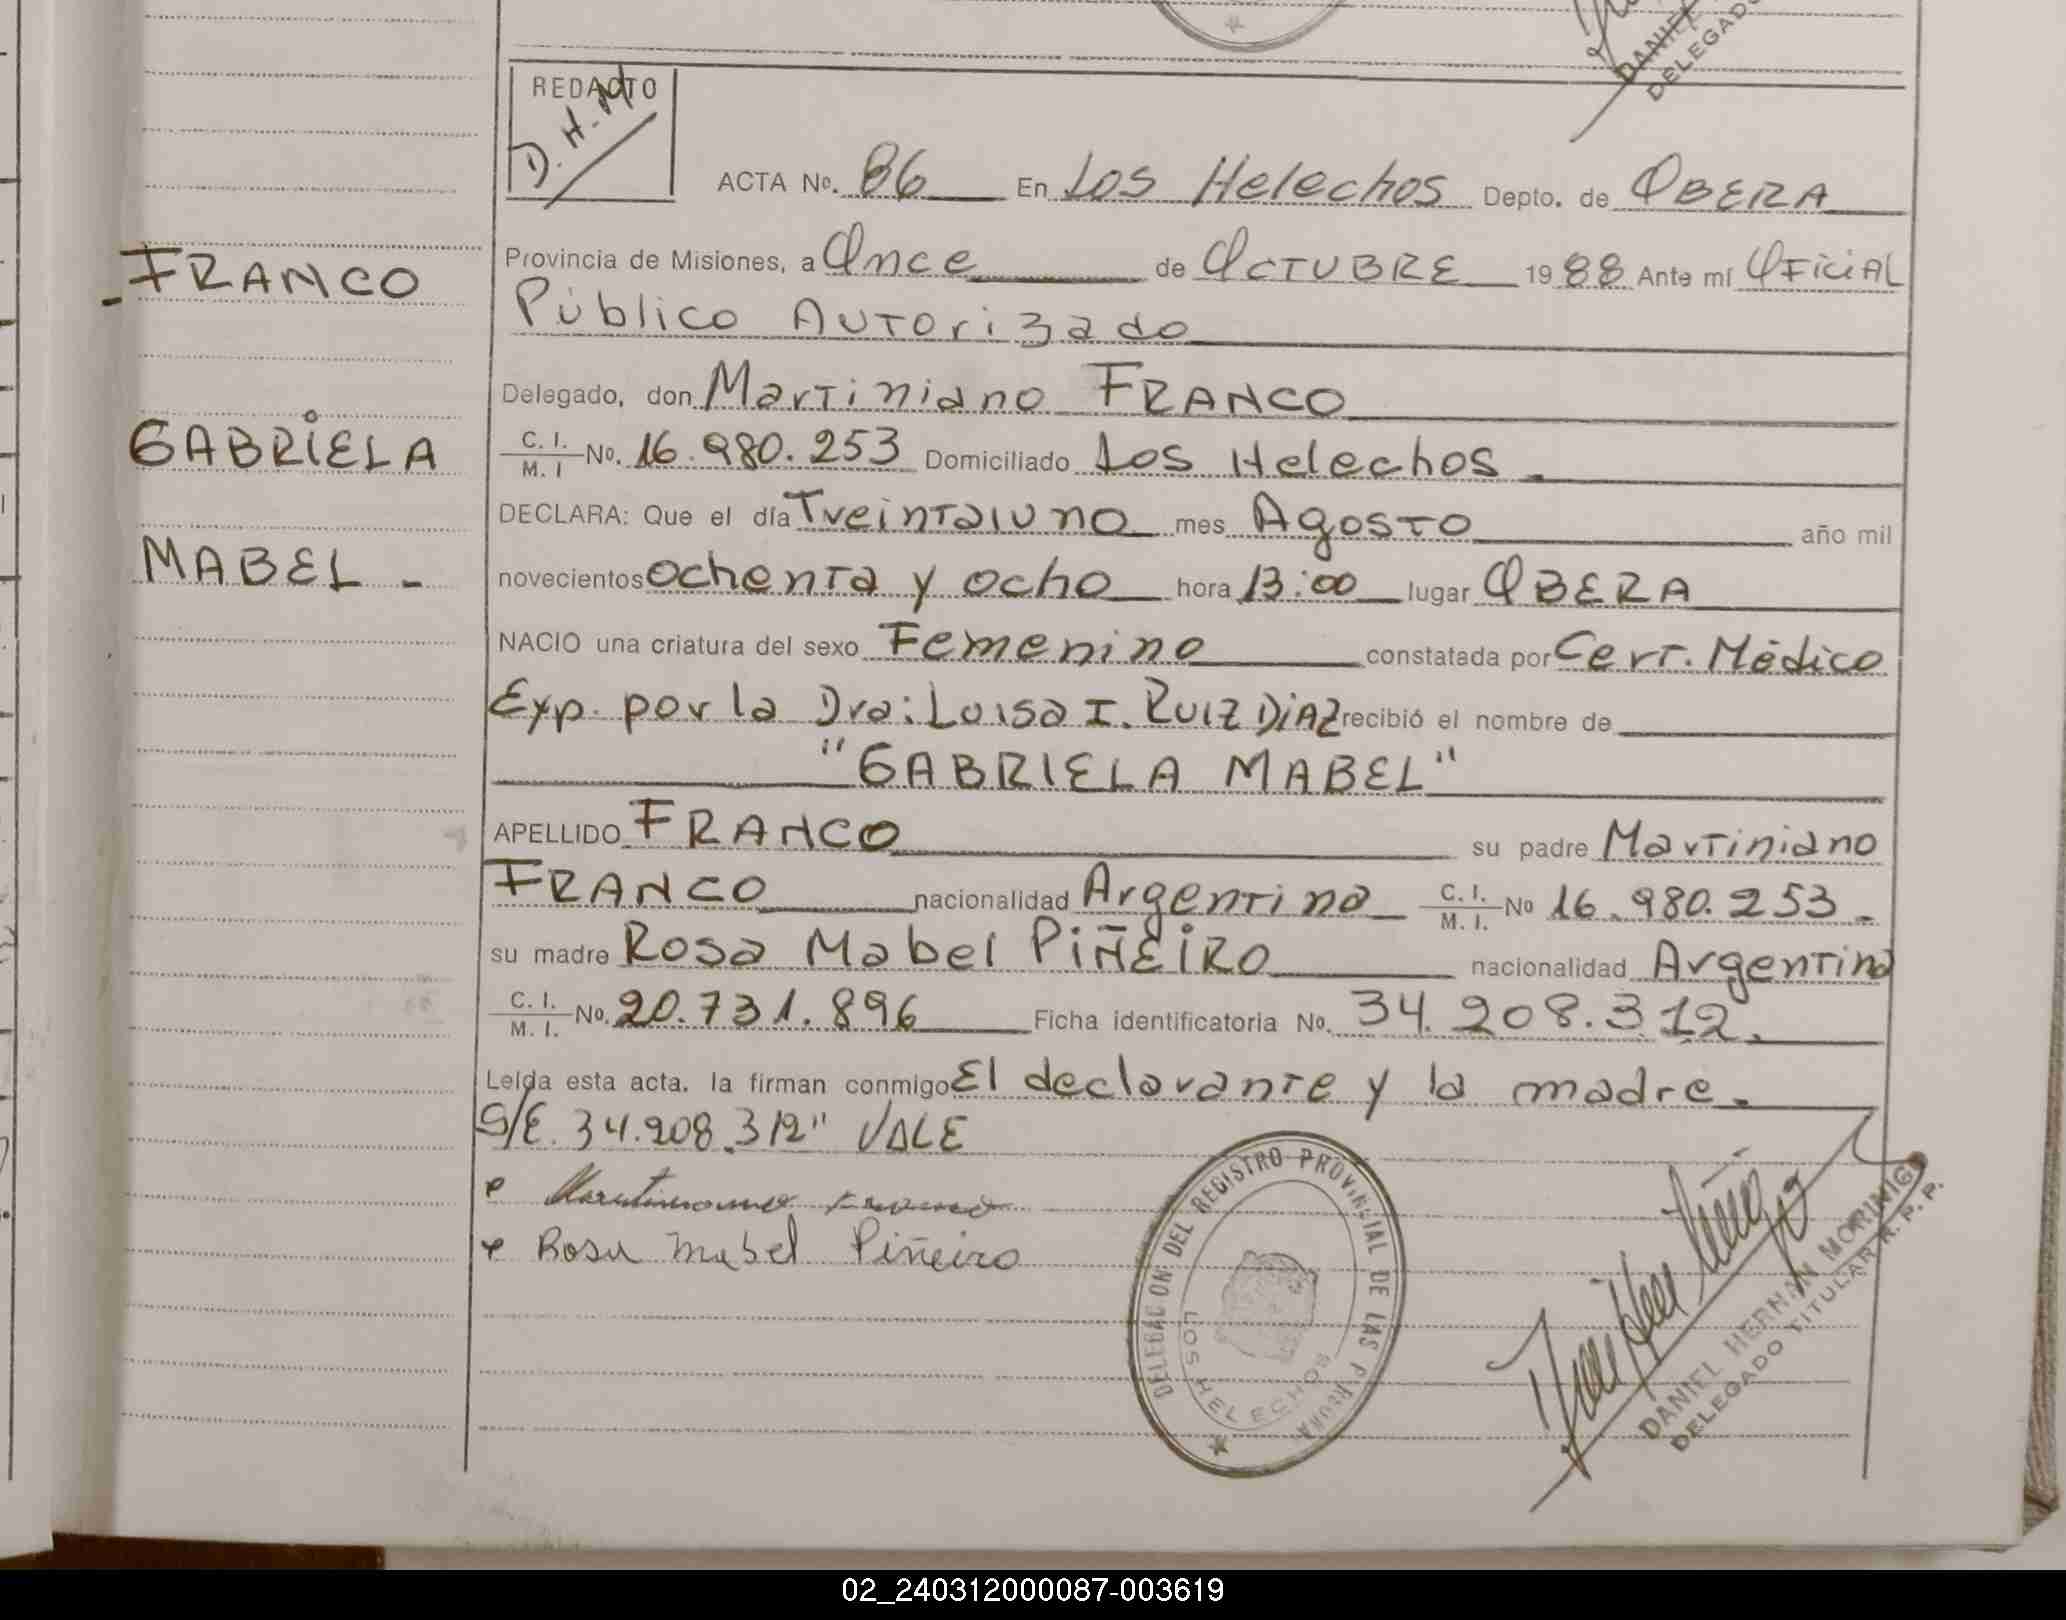 DANIEL
DELEGADO
REDACTO
D.H.M
ACTA Nº. 86 En Los Helechos Depto. de OBERA
Provincia de Misiones, a Once de OCTUBRE 1988 Ante mí OFiCiAL
Público AUTOrizado
Delegado, don MarTiniano FRANCO
C. I. / M. I Nº. 16.980.253 Domiciliado Los Helechos.
DECLARA: Que el día TreinTaiuno mes AgosTo año mil
novecientos ochenTa y ocho hora 13:00 lugar OBERA
NACIO una criatura del sexo Femenino constatada por CerT. Médico
Exp. por la Dra: Luisa I. RUIZ DiAZ recibió el nombre de
"GABRIELA MABEL"
APELLIDO FRANCO su padre MarTiniano
FRANCO nacionalidad ArgenTina C. I. / M. I. Nº 16.980.253.
su madre Rosa Mabel PiÑEiRO nacionalidad ArgenTina
C. I. / M. I. Nº. 20.731.896 Ficha identificatoria Nº. 34.208.312.
Leída esta acta. la firman conmigo El declaranTe y la madre.
S/E. 34.208.312" VALE
Martiniano Franco
Rosa Mabel Piñeiro
FRANCO
GABRiELA
MABEL -
DELEGACION DEL REGISTRO PROVINCIAL DE LAS P
LOS HELECHOS
DANIEL HERNAN MORINIGO
DELEGADO TITULAR R. P. P.
02_240312000087-003619